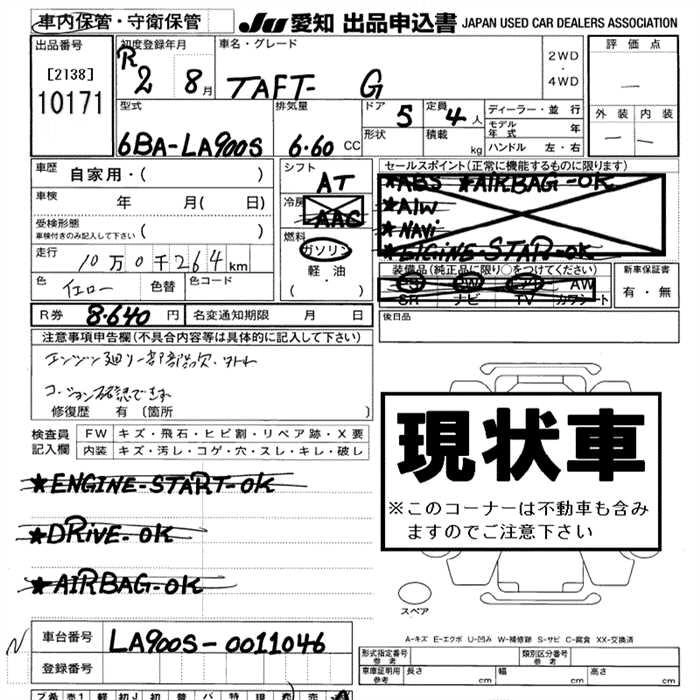 車内保管・守衛保管
JU 愛知 出品申込書 JAPAN USED CAR DEALERS ASSOCIATION
出品番号 初度登録年月 車名・グレード 評価点
[2138] R2 8月 TAFT- G 2WD・4WD
10171 —
型式 排気量 ドア 定員 ディーラー・並行 外装 内装
6BA-LA900S 6.60 CC 5 4人 モデル年式 年 — —
形状 積載 kg ハンドル 左・右
車歴 自家用・( ) シフト AT セールスポイント(正常に機能するものに限ります)
★ABS ★AIRBAG-OK
車検 年 月( 日) 冷房 AAC ★A/W
受検形態 ★NAVI
車検付きのみ記入して下さい ( ) 燃料 ガソリン ★ENGINE-START-OK
走行 10万0千264km 軽・油 装備品(純正品に限り○をつけてください) 新車保証書
色 イエロー 色替 色コード ( ・ ) PS PW エアB AW 有・無
SR ナビ TV カワシート
R券 8.640円 名変通知期限 月 日 後日品
注意事項申告欄(不具合内容等は具体的に記入して下さい)
エンジン廻り一部部品欠・外れ
コ-ション確認できず
修復歴 有〔箇所 〕
現状車
※このコーナーは不動車も含みますのでご注意下さい
検査員記入欄 FW キズ・飛石・ヒビ割・リペア跡・X要
内装 キズ・汚レ・コゲ・穴・スレ・キレ・破レ
★ENGINE-START-OK
★DRIVE-OK
★AIRBAG-OK
スペア
N 車台番号 LA900S-0011046
A-キズ E-エクボ U-凹み W-補修跡 S-サビ C-腐食 XX-交換済
登録番号 形式指定番号 参考 類別区分番号 参考
車庫証明用 参考 長さ cm 幅 cm 高さ cm